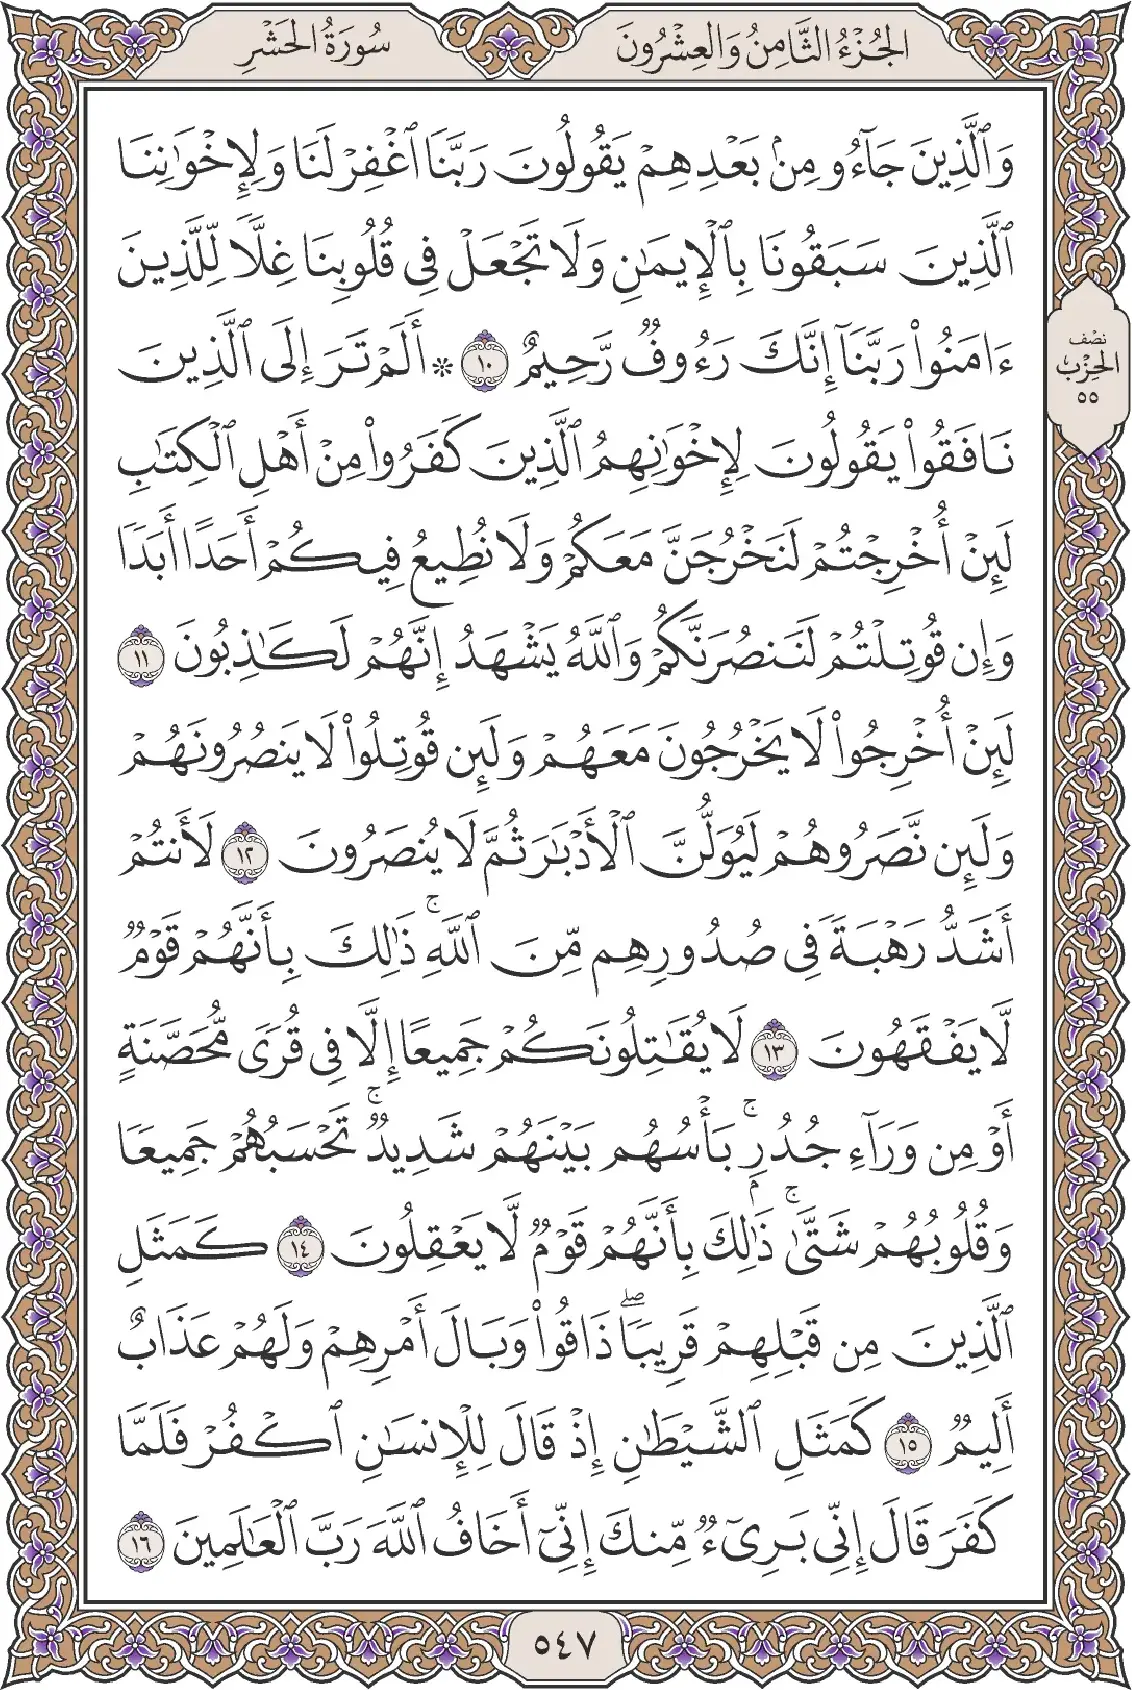 الجُزْءُ الثَّامِنُ وَالعِشْرُونَ
سُورَةُ الحَشْرِ
وَٱلَّذِينَ جَآءُو مِنۢ بَعْدِهِمْ يَقُولُونَ رَبَّنَا ٱغْفِرْ لَنَا وَلِإِخْوَٰنِنَا
ٱلَّذِينَ سَبَقُونَا بِٱلْإِيمَٰنِ وَلَا تَجْعَلْ فِى قُلُوبِنَا غِلًّا لِّلَّذِينَ
ءَامَنُوا۟ رَبَّنَآ إِنَّكَ رَءُوفٌ رَّحِيمٌ ١٠ ۞ أَلَمْ تَرَ إِلَى ٱلَّذِينَ
نَافَقُوا۟ يَقُولُونَ لِإِخْوَٰنِهِمُ ٱلَّذِينَ كَفَرُوا۟ مِنْ أَهْلِ ٱلْكِتَٰبِ
لَئِنْ أُخْرِجْتُمْ لَنَخْرُجَنَّ مَعَكُمْ وَلَا نُطِيعُ فِيكُمْ أَحَدًا أَبَدًا
وَإِن قُوتِلْتُمْ لَنَنصُرَنَّكُمْ وَٱللَّهُ يَشْهَدُ إِنَّهُمْ لَكَٰذِبُونَ ١١
لَئِنْ أُخْرِجُوا۟ لَا يَخْرُجُونَ مَعَهُمْ وَلَئِن قُوتِلُوا۟ لَا يَنصُرُونَهُمْ
وَلَئِن نَّصَرُوهُمْ لَيُوَلُّنَّ ٱلْأَدْبَٰرَ ثُمَّ لَا يُنصَرُونَ ١٢ لَأَنتُمْ
أَشَدُّ رَهْبَةً فِى صُدُورِهِم مِّنَ ٱللَّهِ ۚ ذَٰلِكَ بِأَنَّهُمْ قَوْمٌ
لَّا يَفْقَهُونَ ١٣ لَا يُقَٰتِلُونَكُمْ جَمِيعًا إِلَّا فِى قُرًى مُّحَصَّنَةٍ
أَوْ مِن وَرَآءِ جُدُرٍۭ ۚ بَأْسُهُم بَيْنَهُمْ شَدِيدٌ ۚ تَحْسَبُهُمْ جَمِيعًا
وَقُلُوبُهُمْ شَتَّىٰ ۚ ذَٰلِكَ بِأَنَّهُمْ قَوْمٌ لَّا يَعْقِلُونَ ١٤ كَمَثَلِ
ٱلَّذِينَ مِن قَبْلِهِمْ قَرِيبًا ۖ ذَاقُوا۟ وَبَالَ أَمْرِهِمْ وَلَهُمْ عَذَابٌ
أَلِيمٌ ١٥ كَمَثَلِ ٱلشَّيْطَٰنِ إِذْ قَالَ لِلْإِنسَٰنِ ٱكْفُرْ فَلَمَّا
كَفَرَ قَالَ إِنِّى بَرِىٓءٌ مِّنكَ إِنِّىٓ أَخَافُ ٱللَّهَ رَبَّ ٱلْعَٰلَمِينَ ١٦
نصْف
الحِزْب
٥٥
٥٤٧